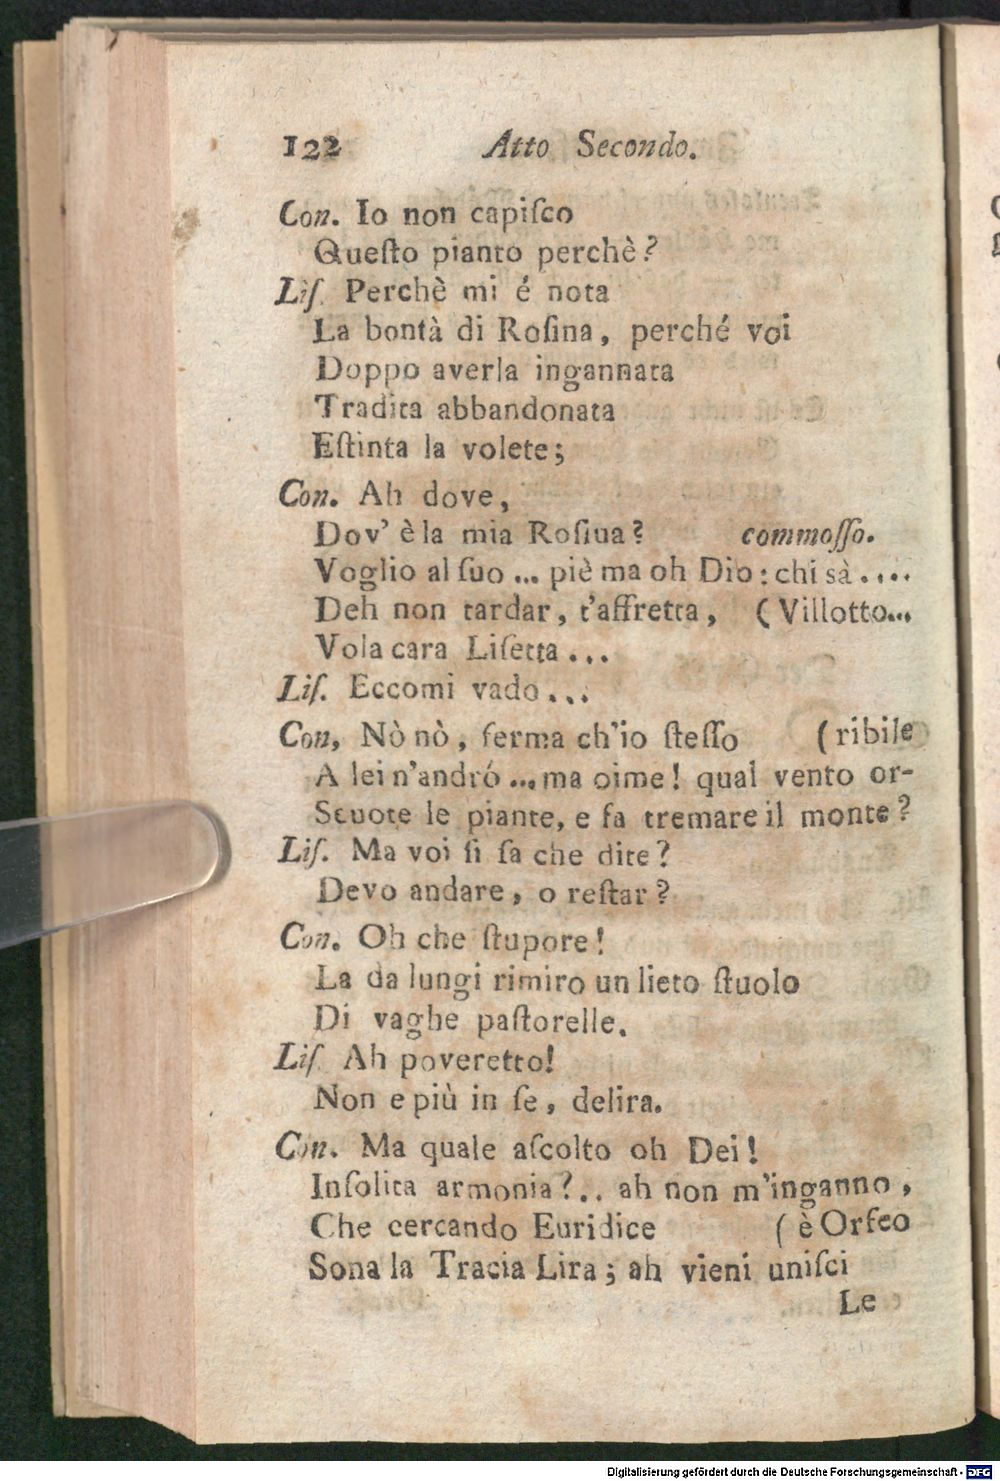 122 Atto Secondo.
Con. Io non capiſco
Queſto pianto perchè?
Liſ. Perchè mi é nota
La bontà di Roſina, perché voi
Doppo averla ingannata
Tradita abbandonata
Eſtinta la volete;
Con. Ah dove,
Dov' è la mia Roſiua? commoſſo.
Voglio al ſuo ... piè ma oh Dio: chi sà ....
Deh non tardar, t'affretta, (Villotto...
Vola cara Liſetta ...
Liſ. Eccomi vado ...
Con, Nò nò, ferma ch'io ſteſſo (ribile
A lei n'andró ... ma oime! qual vento or-
Scuote le piante, e fa tremare il monte?
Liſ. Ma voi ſi ſa che dite?
Devo andare, o reſtar?
Con. Oh che ſtupore!
La da lungi rimiro un lieto ſtuolo
Di vaghe paſtorelle.
Liſ. Ah poveretto!
Non e più in ſe, delira.
Con. Ma quale aſcolto oh Dei!
Inſolita armonia? .. ah non m'inganno,
Che cercando Euridice (è Orfeo
Sona la Tracia Lira; ah vieni uniſci
Le
Digitalisierung gefördert durch die Deutsche Forschungsgemeinschaft - DFG